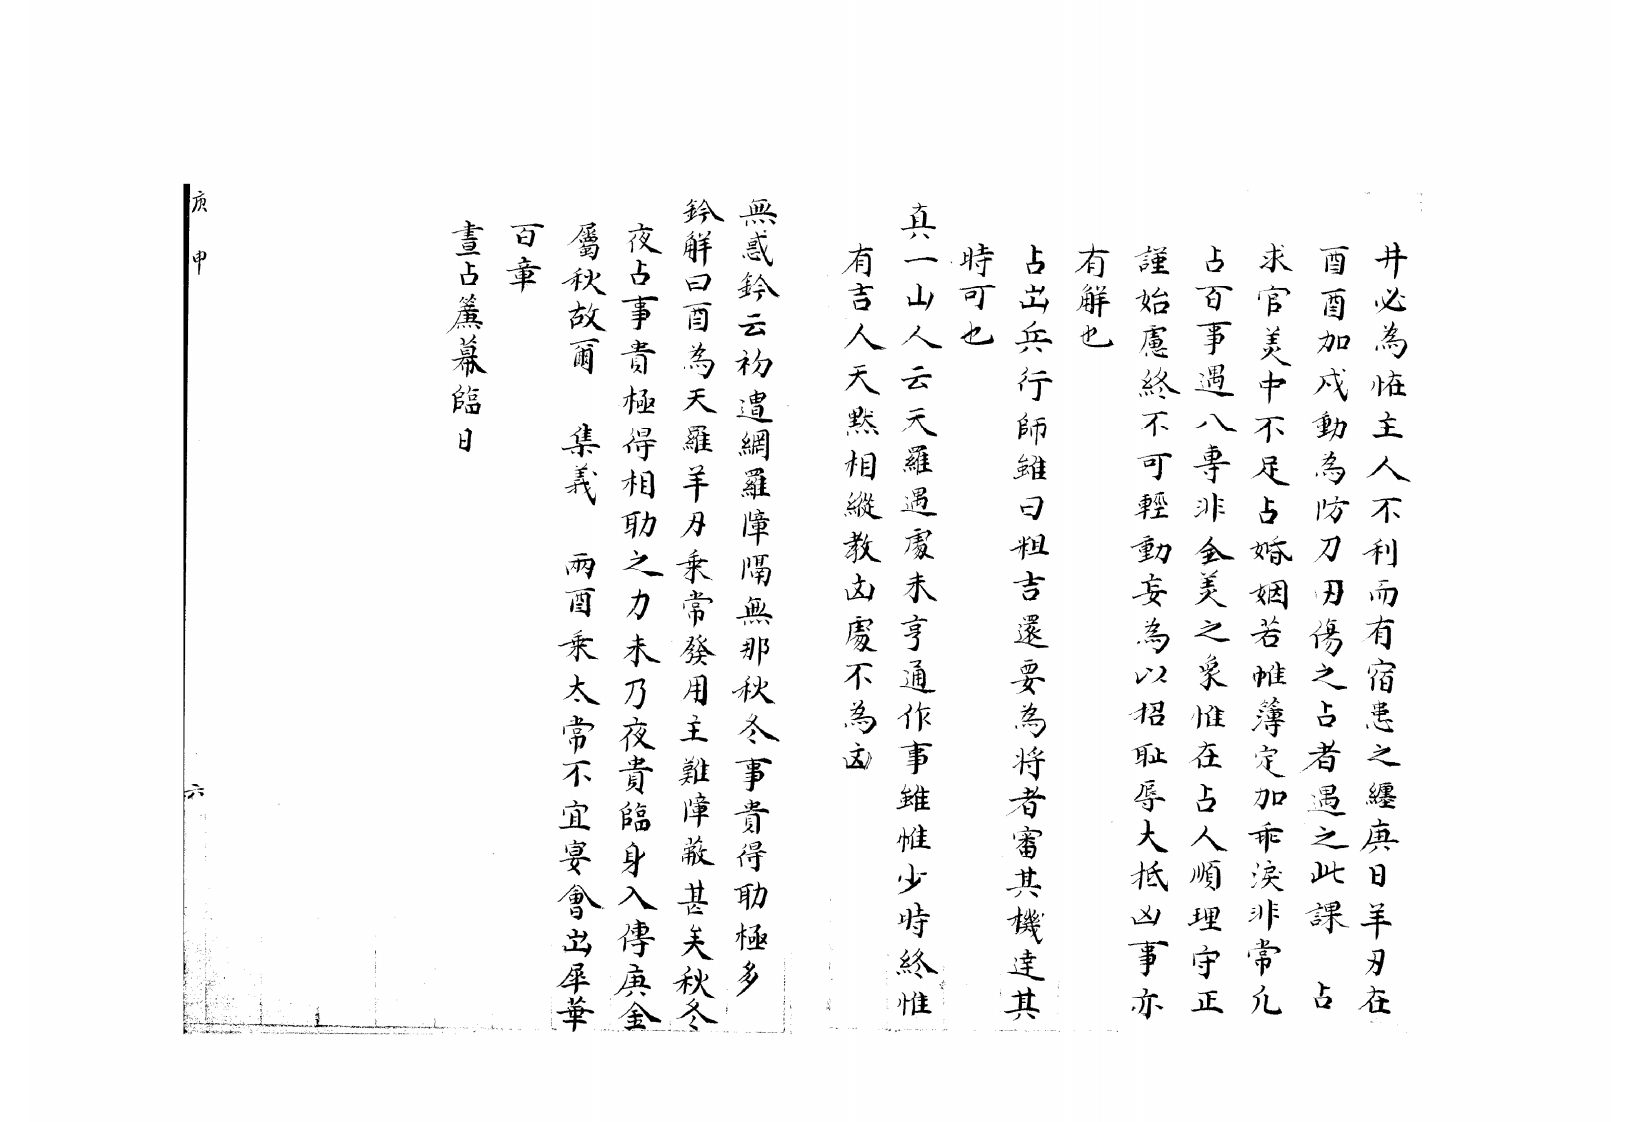 井必為怪主人不利而有宿患之纏庚日羊刃在
酉酉加戍動為防刀刃傷之占者遇之此課　占
求官美中不足占婚姻若帷薄定加乖淚非常凢
占百事遇八專非全美之象惟在占人順理守正
謹始慮終不可輕動妄為以招耻辱大抵凶事亦
有解也
占出兵行師雖曰粗吉還要為将者審其機達其
時可也
真一山人云天羅遇處未亨通作事雖惟少時終惟
有吉人天黙相縱教凶處不為凶
無惑鈐云初遭網羅障隔無那秋冬事貴得助極多
鈐解曰酉為天羅羊刃乗常發用主難障蔽甚矣秋冬
夜占事貴極得相助之力未乃夜貴臨身入傳庚金
屬秋故爾　集義　兩酉乗太常不宜宴會出犀華
百章
晝占簾幕臨日
庚申　六